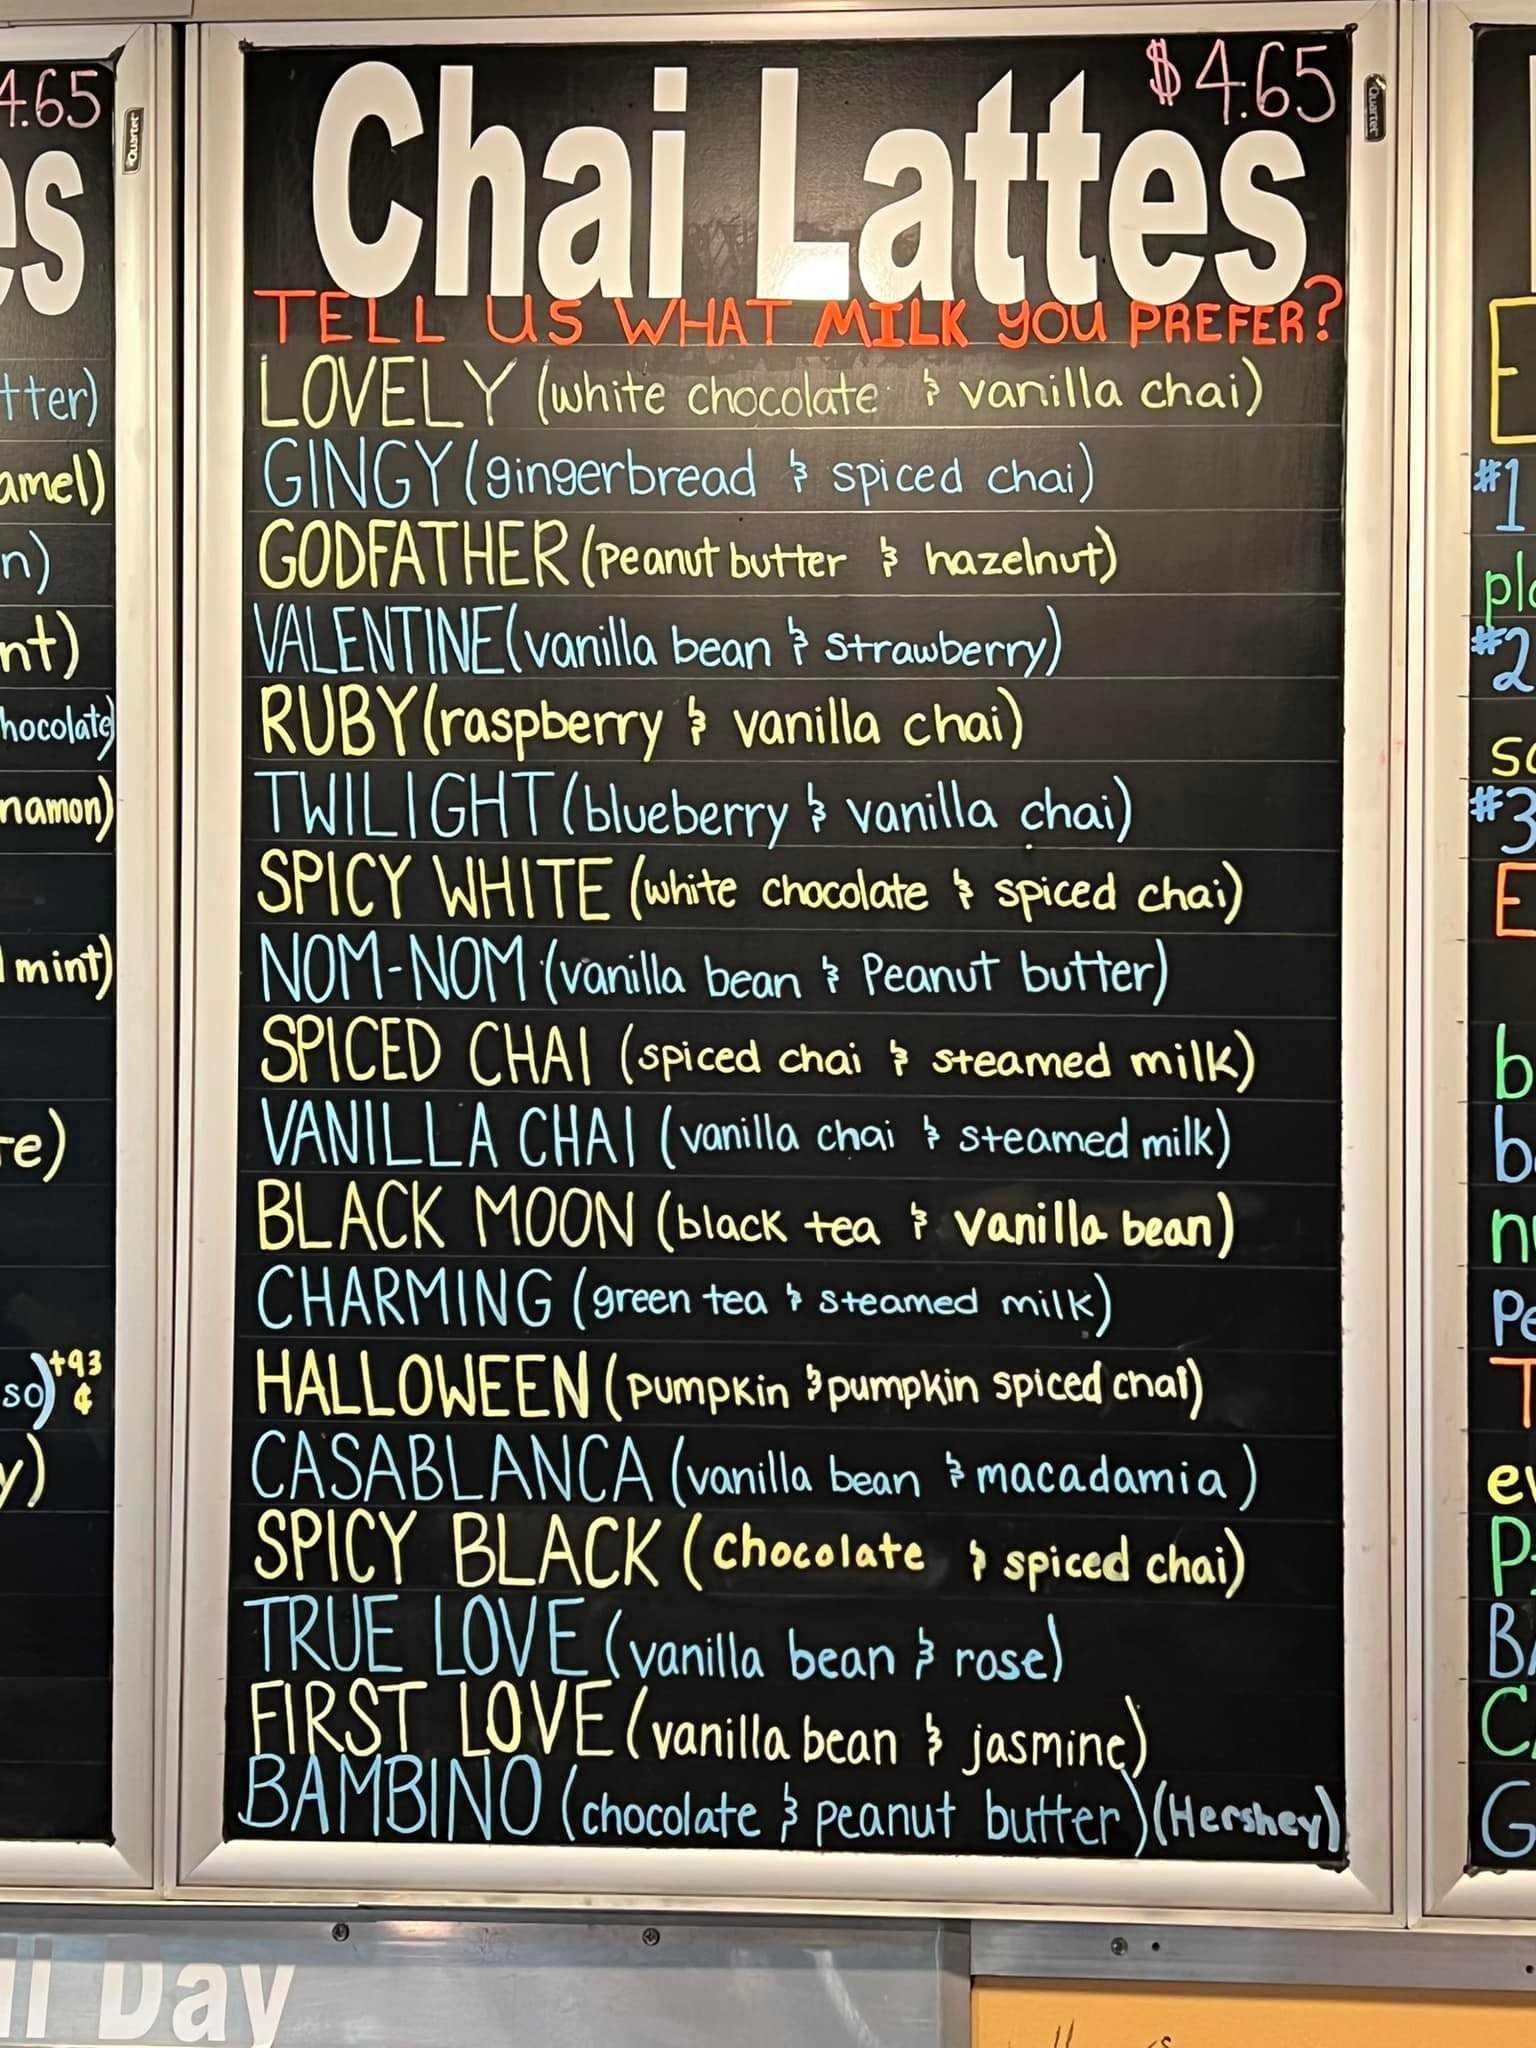 $4.65
Chai Lattes
TELL US WHAT MILK YOU PREFER?
LOVELY (white chocolate & vanilla chai)
GINGY (gingerbread & spiced chai)
GODFATHER (peanut butter & hazelnut)
VALENTINE (vanilla bean & strawberry)
RUBY (raspberry & vanilla chai)
TWILIGHT (blueberry & vanilla chai)
SPICY WHITE (white chocolate & spiced chai)
NOM-NOM (vanilla bean & Peanut butter)
SPICED CHAI (spiced chai & steamed milk)
VANILLA CHAI (vanilla chai & steamed milk)
BLACK MOON (black tea & vanilla bean)
CHARMING (green tea & steamed milk)
HALLOWEEN (pumpkin & pumpkin spiced chai)
CASABLANCA (vanilla bean & macadamia)
SPICY BLACK (chocolate & spiced chai)
TRUE LOVE (vanilla bean & rose)
FIRST LOVE (vanilla bean & jasmine)
BAMBINO (chocolate & peanut butter) (Hershey)
4.65
Quartet
Quartet
hocolate)
mint)
+93
¢
#1
#2
#3
Day